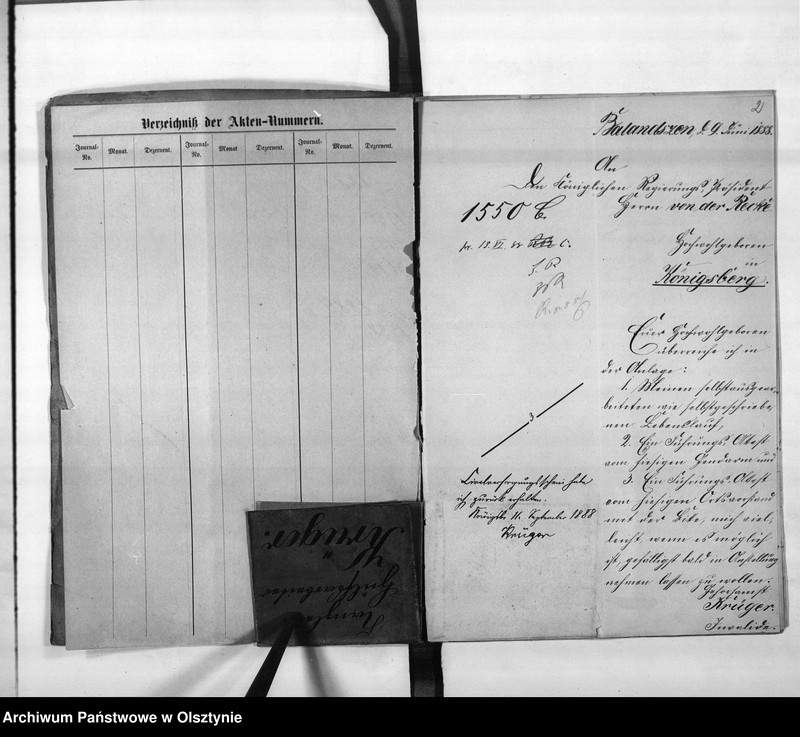 Verzeichniß der Akten-Nummern.
Journal-No. Monat. Dezernent. Journal-No. Monat Dezernent. Journal-No. Monat. Dezernent.
Kanzlei
Hülfsarbeiter
Krüger.
2
d. 9. Juni 1888.
An
Den Königlichen Regierungs-Präsident
Herrn von der Recke
Hochwohlgeboren
in
Königsberg.
1550 C.
Euer Hochwohlgeboren
überreiche ich in
der Anlage:
1. Meinen selbstausgear-
beiteten wie selbstgeschriebe-
nen Lebenslauf,
2. Ein Führungs-Attest
vom hiesigen Gendarm und
3. Ein Führungs-Attest
vom hiesigen Ortsvorstand
mit der Bitte, mich viel-
leicht, wenn es möglich
ist, gefälligst bald in Anstellung
nehmen lassen zu wollen.
Gehorsamst
Krüger.
Invalide.
3
Civilversorgungsschein habe
ich zurück erhalten.
11. September 1888
Krüger
Archiwum Państwowe w Olsztynie